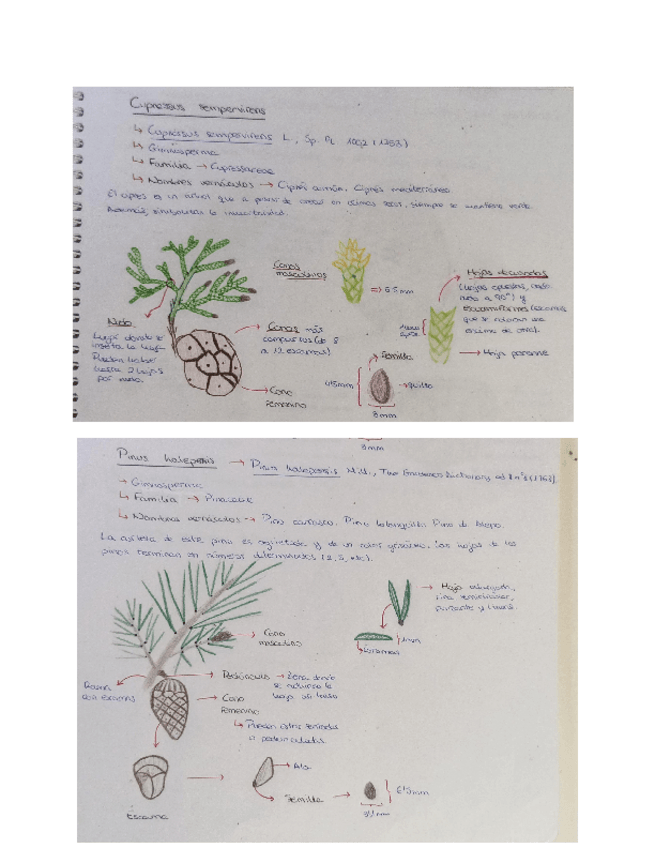 Cupressus sempervirens
↳ Cupressus sempervirens L., Sp. Pl. 1002 (1753)
↳ Gimnosperma
↳ Familia → Cupressaceae
↳ Nombres vernáculos → Ciprés común, Ciprés mediterráneo
El ciprés es un árbol que a pesar de crecer en climas secos, siempre se mantiene verde.
Además, simboliza la inmortalidad.
Conos
masculinos
⇒ 6.5 mm
Hojas decusadas
(hojas opuestas, cada
nudo a 90°) y
escuamiformes (escamas
que se colocan una
encima de otra).
→ Hoja perenne
Nudo
Lugar donde se
inserta la hoja.
Pueden haber
hasta 2 hojas
por nudo.
→ Conos más
(de 8
a 12 escamas)
→ Cono
femenino
Semilla
mm
8 mm
mm
Pinus halepensis → Pinus halepensis Mill., The Gardeners Dictionary ed. 8 nº8 (1768).
→ Gimnosperma
↳ Familia → Pinaceae
↳ Nombres vernáculos → Pino carrasco, Pino blanquillo, Pino de Alepo.
La corteza de este pino es agrietada y de un color grisáceo. Las hojas de los
pinos terminan en números determinados (2, 5, etc).
→ Cono
masculino
→ Hoja alargada,
fina,
punzante y
mm
Rama
con escamas
→ Pedúnculo → Zona donde
se
→ Cono
femenino
↳ Pueden estar sentados
o pedunculados.
Escama
→ Ala
Semilla →
mm
mm